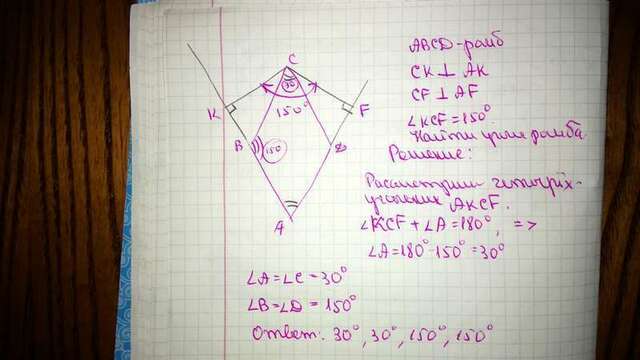 ABCD - ромб
CK ⊥ AK
CF ⊥ AF
∠KCF = 150°
Найти углы ромба.
Решение:
Рассмотрим четырёх-
угольник AKCF.
∠KCF + ∠A = 180°, =>
∠A = 180° - 150° = 30°
C
30
K
150°
F
B
150
D
A
∠A = ∠C = 30°
∠B = ∠D = 150°
Ответ: 30°, 30°, 150°, 150°